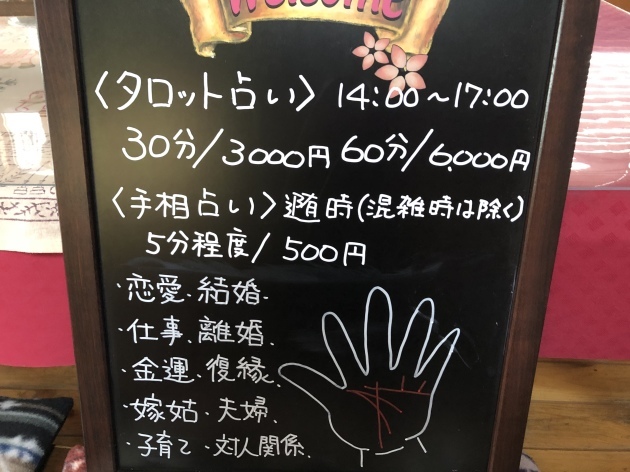 Welcome
〈タロット占い〉 14:00～17:00
30分/3000円 60分/6,000円
〈手相占い〉随時(混雑時は除く)
5分程度/500円
・恋愛・結婚・
・仕事・離婚・
・金運・復縁・
・嫁姑・夫婦・
・子育て・対人関係・